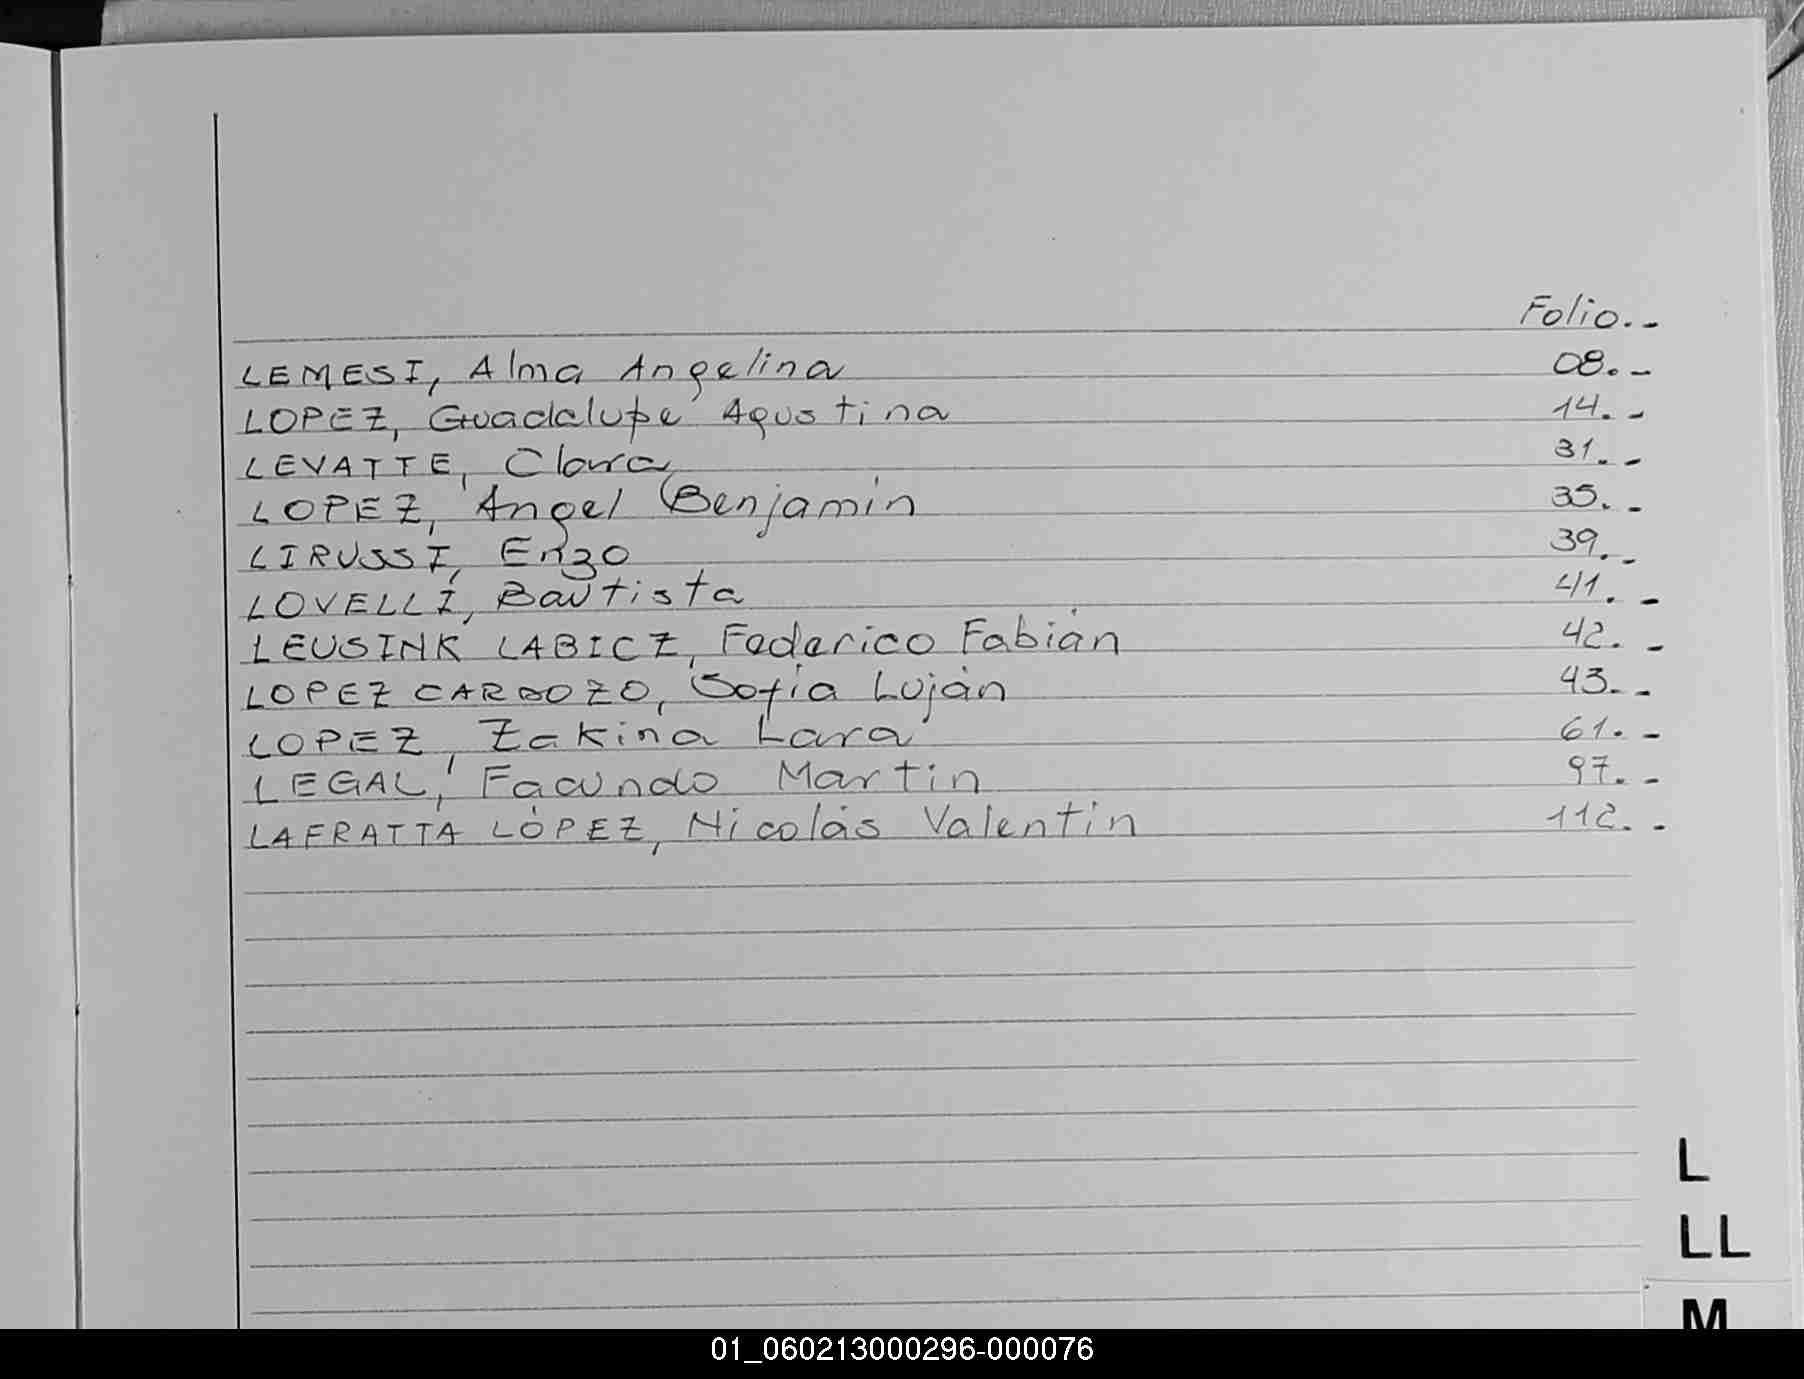 Folio.-
LEMESI, Alma Angelina 08.-
LOPEZ, Guadalupe Agustina 14.-
LEVATTE, Clara 31.-
LOPEZ, Angel Benjamín 35.-
LIRUSSI, Enzo 39.-
LOVELLI, Bautista 41.-
LEUSINK LABICZ, Federico Fabián 42.-
LOPEZ CARDOZO, Sofía Luján 43.-
LOPEZ, Zakina Lara 61.-
LEGAL, Facundo Martin 97.-
LAFRATTA LÓPEZ, Nicolás Valentín 112.-
L
LL
M
01_060213000296-000076